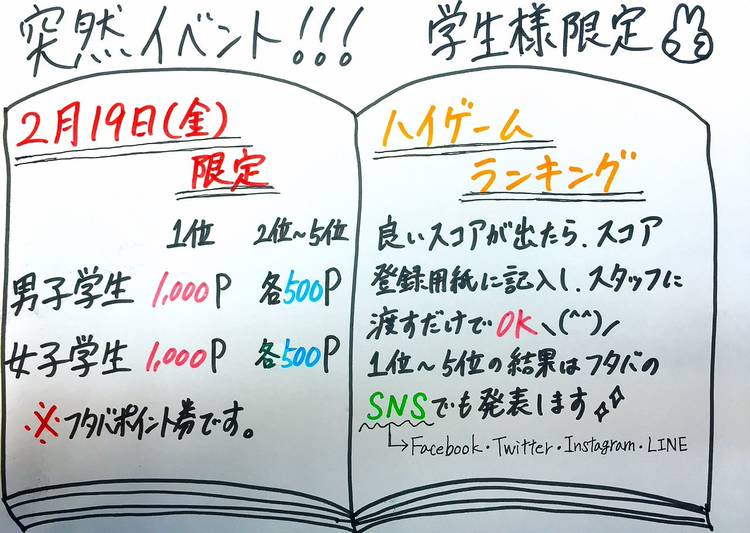 突然イベント!!! 学生様限定
2月19日(金)
限定
1位 2位~5位
男子学生 1,000P 各500P
女子学生 1,000P 各500P
※フタバポイント券です。
ハイゲーム
ランキング
良いスコアが出たら、スコア
登録用紙に記入し、スタッフに
渡すだけでOK\(^^)/
1位~5位の結果はフタバの
SNSでも発表します
→Facebook・Twitter・Instagram・LINE